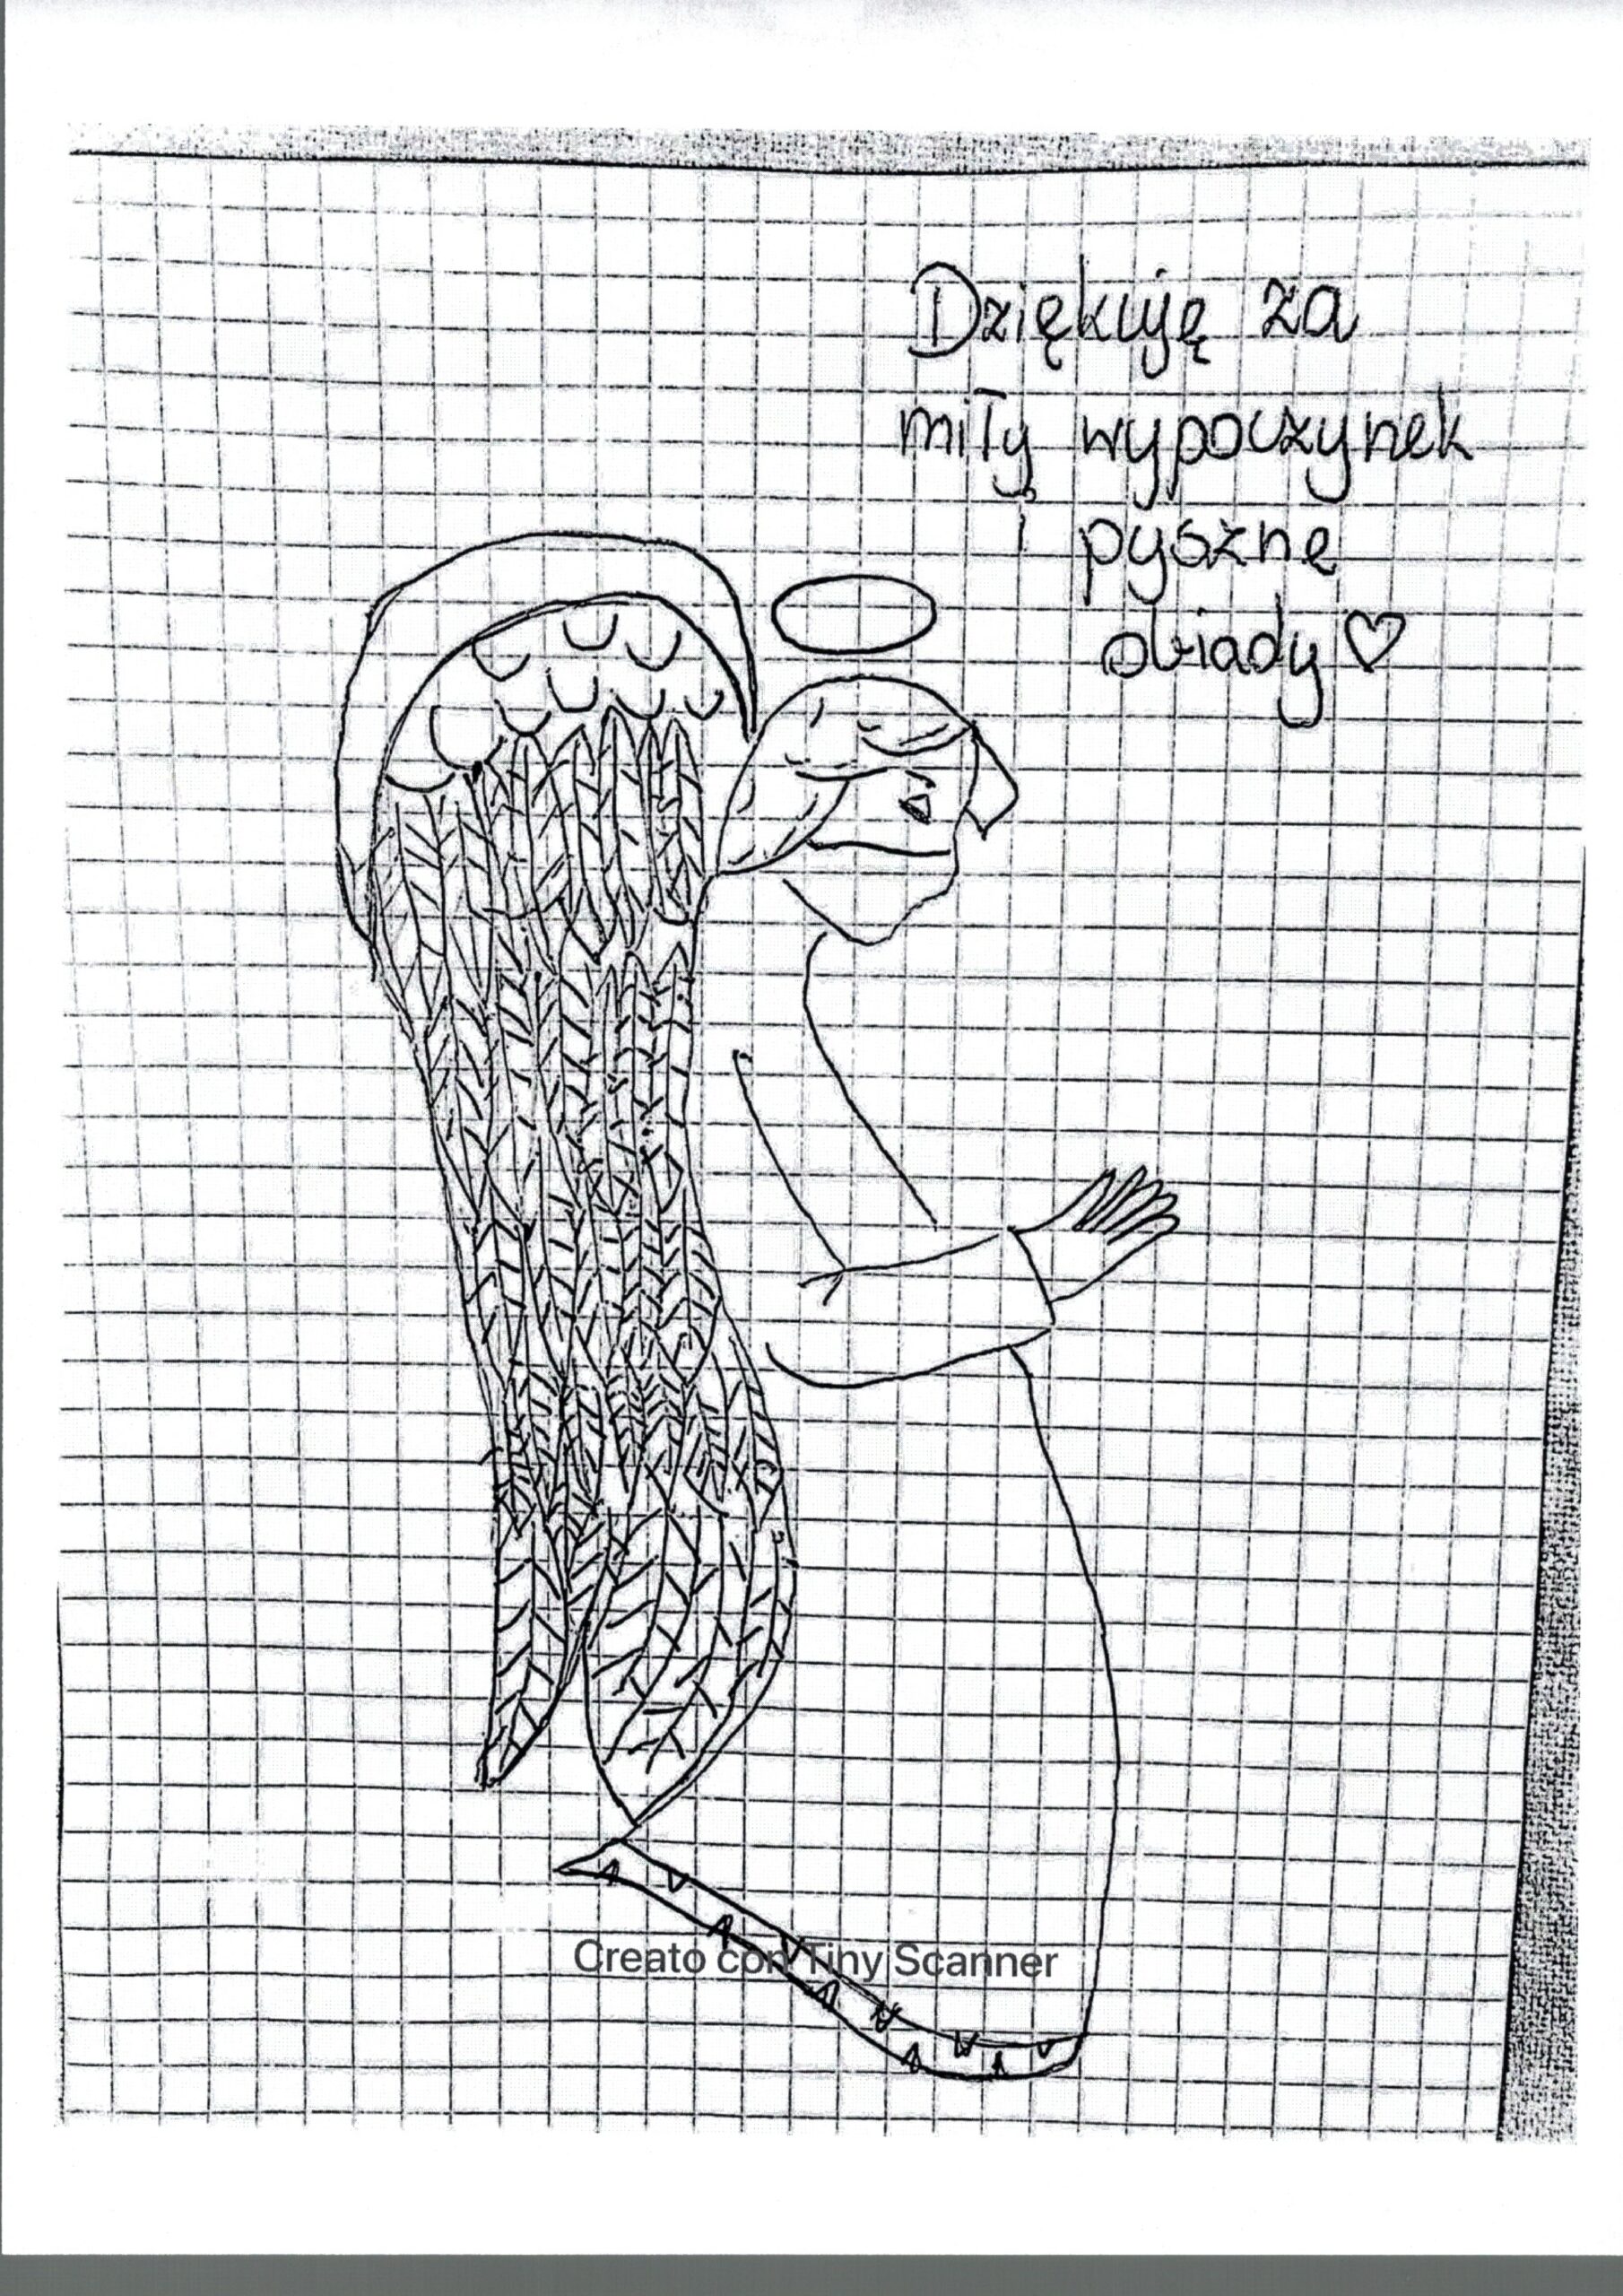 Dziękuję za
miły wypoczynek
i pyszne
obiady ♡
Creato con Tiny Scanner